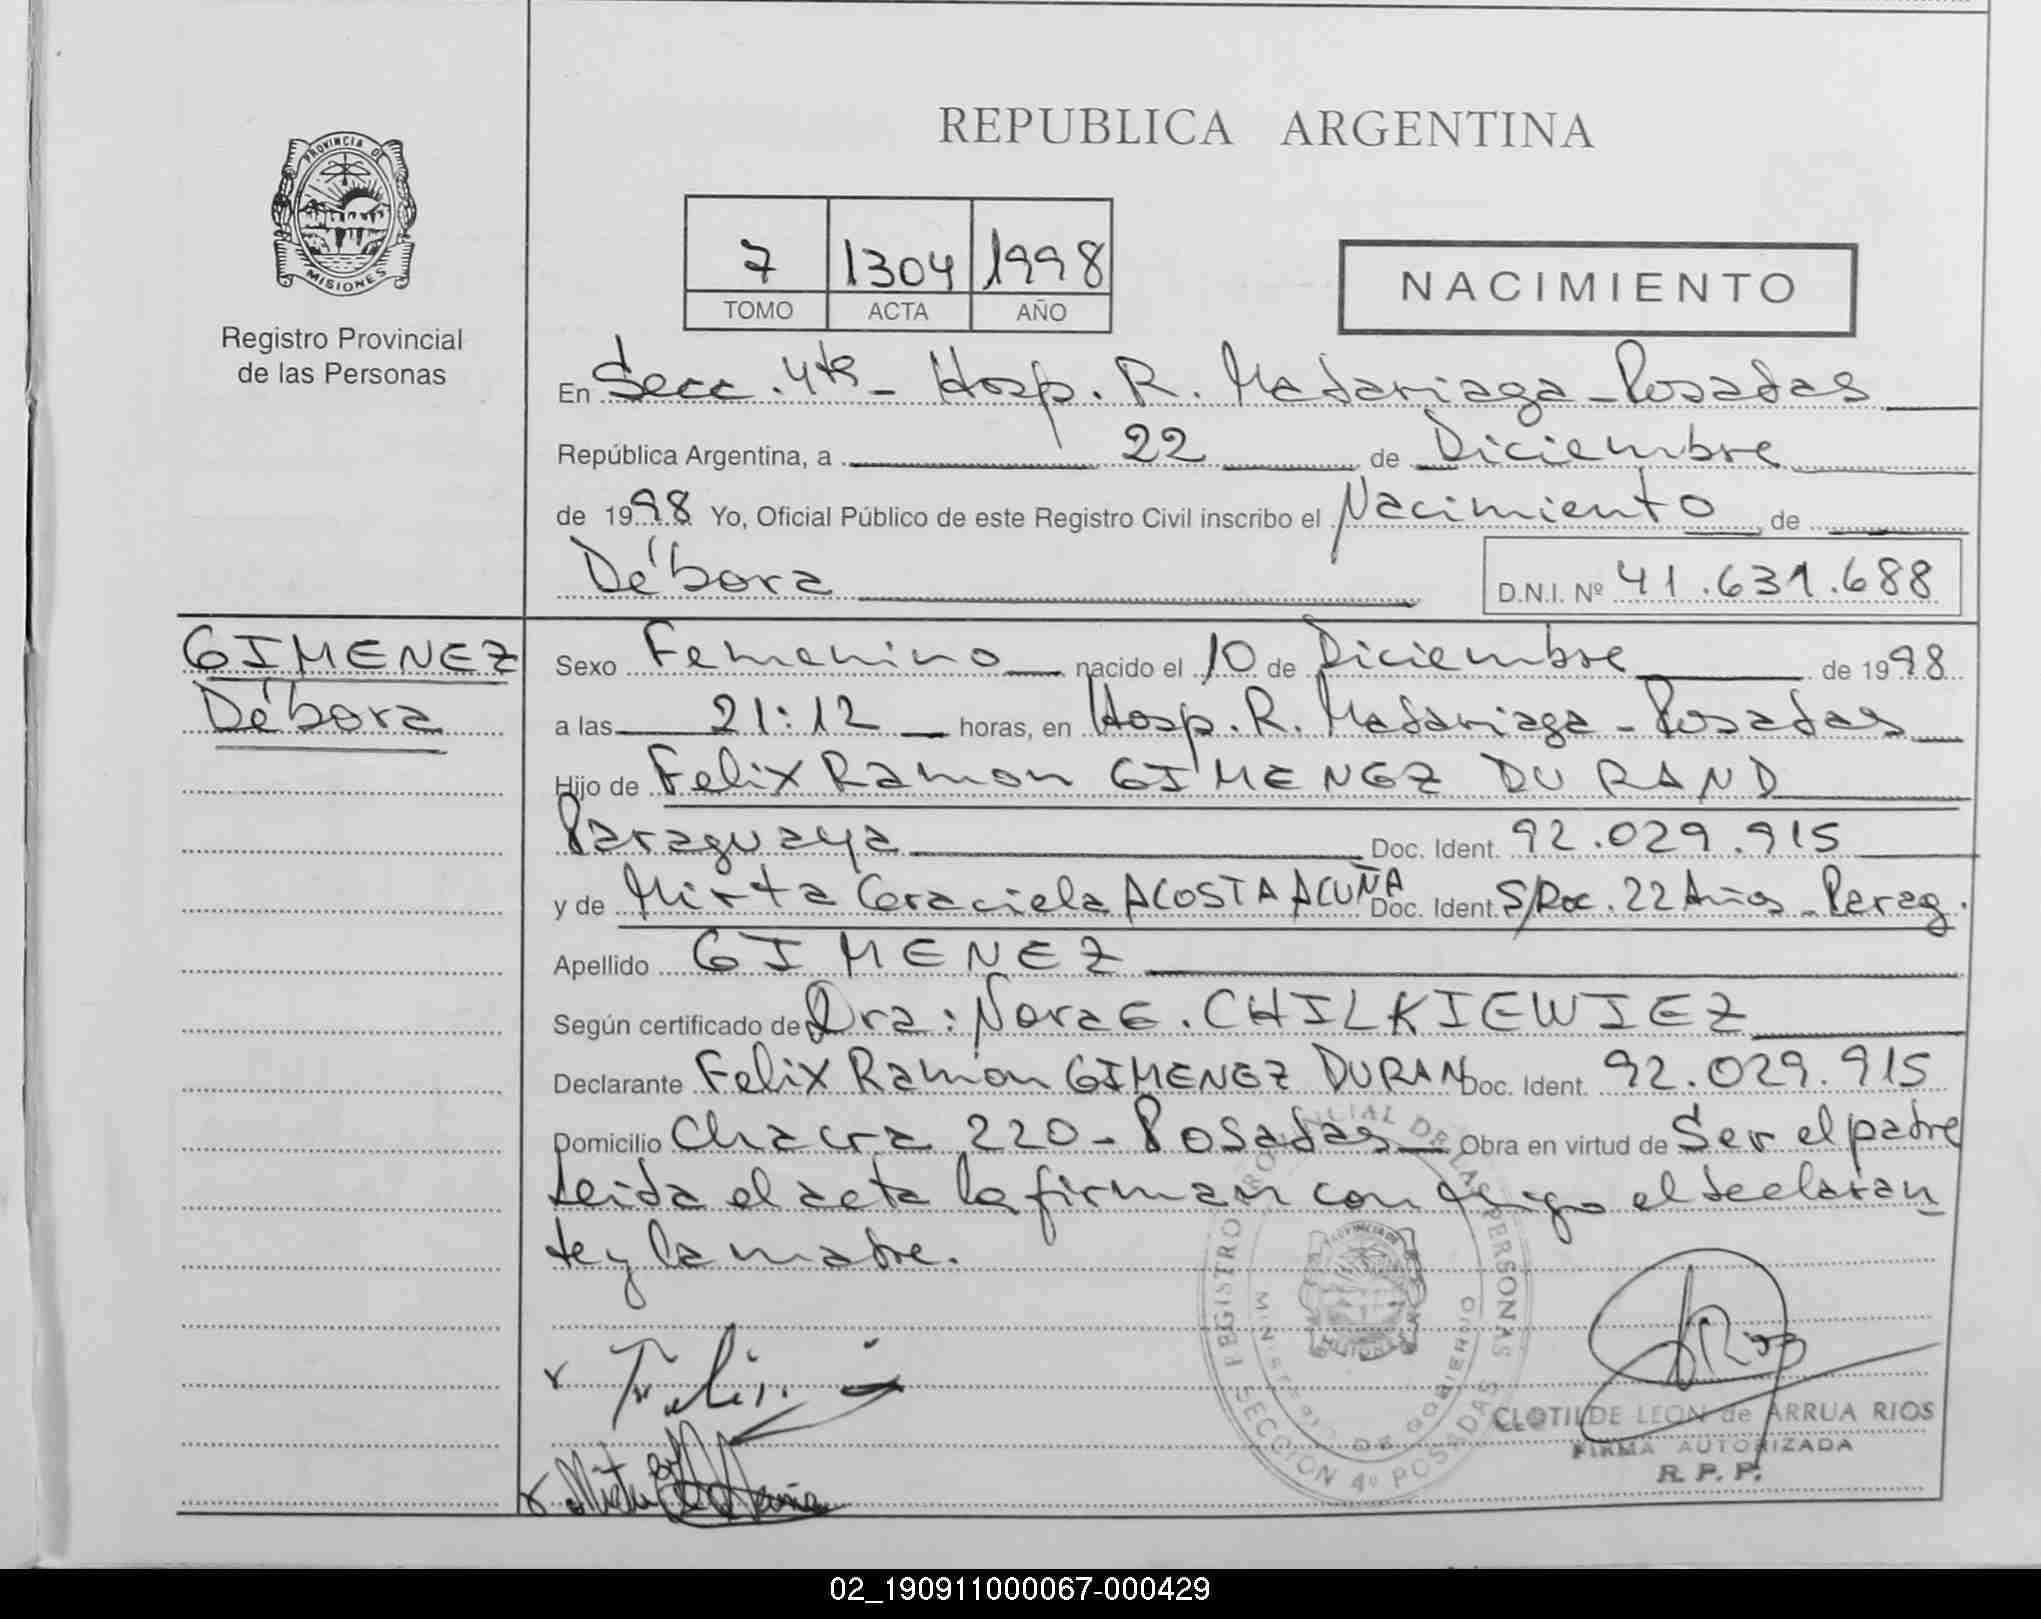 REPUBLICA ARGENTINA
PROVINCIA DE
MISIONES
Registro Provincial
de las Personas
7 1304 1998
TOMO ACTA AÑO
NACIMIENTO
En Secc. 4ta - Hosp. R. Madariaga - Posadas
República Argentina, a 22 de Diciembre
de 1998 Yo, Oficial Público de este Registro Civil inscribo el Nacimiento de
Débora D.N.I. Nº 41.631.688
GIMENEZ
Débora
Sexo Femenino nacido el 10 de Diciembre de 1998
a las 21:12 horas, en Hosp. R. Madariaga - Posadas
Hijo de Felix Ramon GIMENEZ DURAND
Paraguaya Doc. Ident. 92.029.915
y de Mirta Graciela ACOSTA ACUÑA Doc. Ident. S/Doc. 22 Años - Parag.
Apellido GIMENEZ
Según certificado de Dra: Nora E. CHILKIEWIEZ
Declarante Felix Ramon GIMENEZ DURAND Doc. Ident. 92.029.915
Domicilio Chacra 220 - Posadas Obra en virtud de Ser el padre
Leida el acta la firman conmigo el declaran
te y la madre.
REGISTRO PROVINCIAL DE LAS PERSONAS
MINISTERIO DE GOBIERNO
SECCION 4º POSADAS
CLOTILDE LEON de ARRUA RIOS
FIRMA AUTORIZADA
R. P. P.
02_190911000067-000429